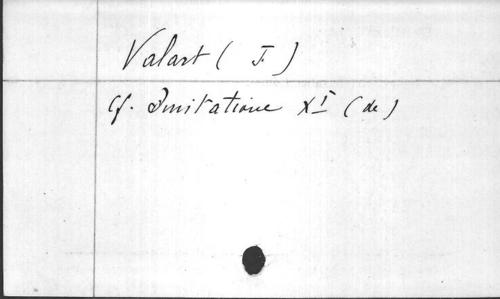 Valart ( J. )
Cf. Imitatione Xi (de)